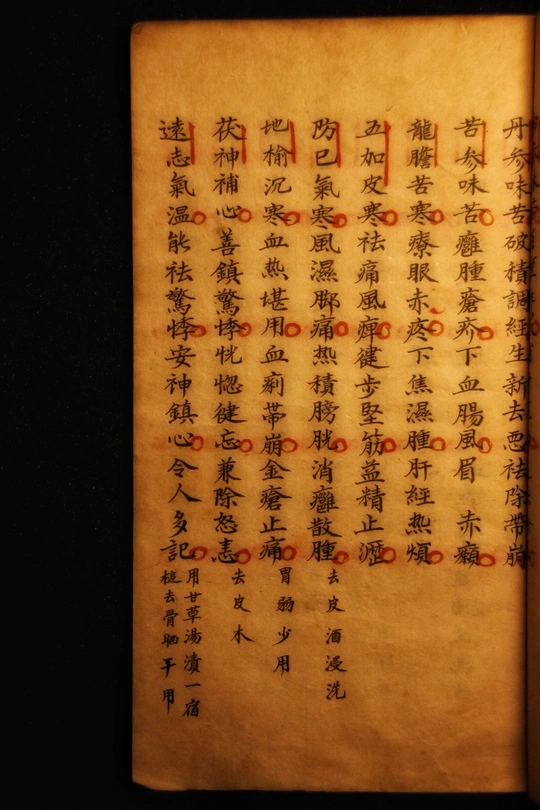 丹參味苦破積調經生新去惡祛除帶崩
苦參味苦癰腫瘡疥下血腸風眉 赤癩
龍膽苦寒療眼赤疼下焦濕腫肝經熱煩
五加皮寒祛痛風痺健步堅筋益精止瀝
防已氣寒風濕脚痛熱積膀胱消癰散腫
去皮酒浸洗
地榆沉寒血熱堪用血痢帶崩金瘡止痛
胃弱少用
茯神補心善鎮驚悸恍惚健忘兼除怒恚
去皮木
遠志氣温能祛驚悸安神鎮心令人多記
用甘草湯漬一宿
槌去骨晒干用